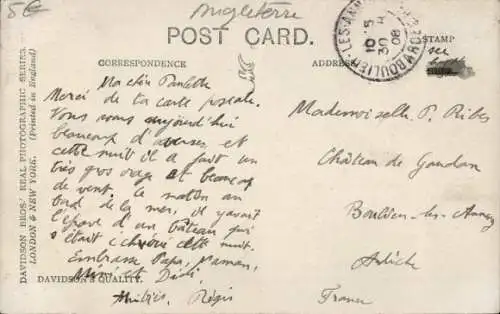 5€
Angleterre
POST CARD.
CORRESPONDENCE
ADDRESS
STAMP
DAVIDSON BROS.' REAL PHOTOGRAPHIC SERIES.
LONDON & NEW YORK. (Printed in England)
DAVIDSON'S QUALITY.
Ma chère Paulette
Merci de ta carte postale.
Nous avons aujourd'hui
beaucoup d'averses et
cette nuit il a fait un
très gros orage et beaucoup
de vent. Ce matin au
bord de la mer, il y avait
l'épave d'un bateau qui
s'était échoué cette nuit.
Embrasse Papa, Maman,
Mimi et Didi
Régis
Mademoiselle P. Ribes
Château de
Boulieu-les-Annonay
Ardèche
France